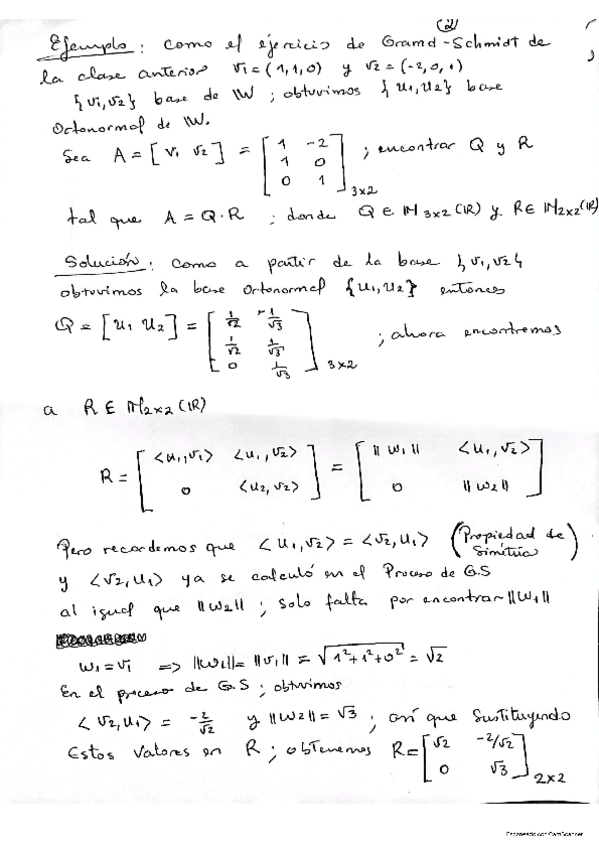 (2)
Ejemplo: Como el ejercicio de Gramd-Schmidt de
la clase anterior v1 = (1,1,0) y v2 = (-2,0,1)
{v1,v2} base de W; obtuvimos {u1,u2} base
Ortonormal de W.
Sea A = [v1 v2] = [1 -2; 1 0; 0 1] 3x2 ; encontrar Q y R
tal que A = Q·R ; donde Q ∈ M3x2(IR) y R ∈ M2x2(IR)
Solución: Como a partir de la base {v1,v2}
obtuvimos la base Ortonormal {u1,u2} entonces
Q = [u1 u2] = [1/√2 -1/√3; 1/√2 1/√3; 0 1/√3] 3x2 ; ahora encontremos
a R ∈ M2x2(IR)
R = [<u1,v1> <u1,v2>; 0 <u2,v2>] = [||w1|| <u1,v2>; 0 ||w2||]
Pero recordemos que <u1,v2> = <v2,u1> (Propiedad de Simitria)
y <v2,u1> ya se calculó en el Proceso de G.S
al igual que ||w2|| ; solo falta por encontrar ||w1||
w1 = v1 => ||w1|| = ||v1|| = √1²+1²+0² = √2
En el proceso de G.S ; obtuvimos
<v2,u1> = -2/√2 y ||w2|| = √3 ; así que Sustituyendo
Estos valores en R ; obtenemos R = [√2 -2/√2; 0 √3] 2x2
Escaneado con CamScanner